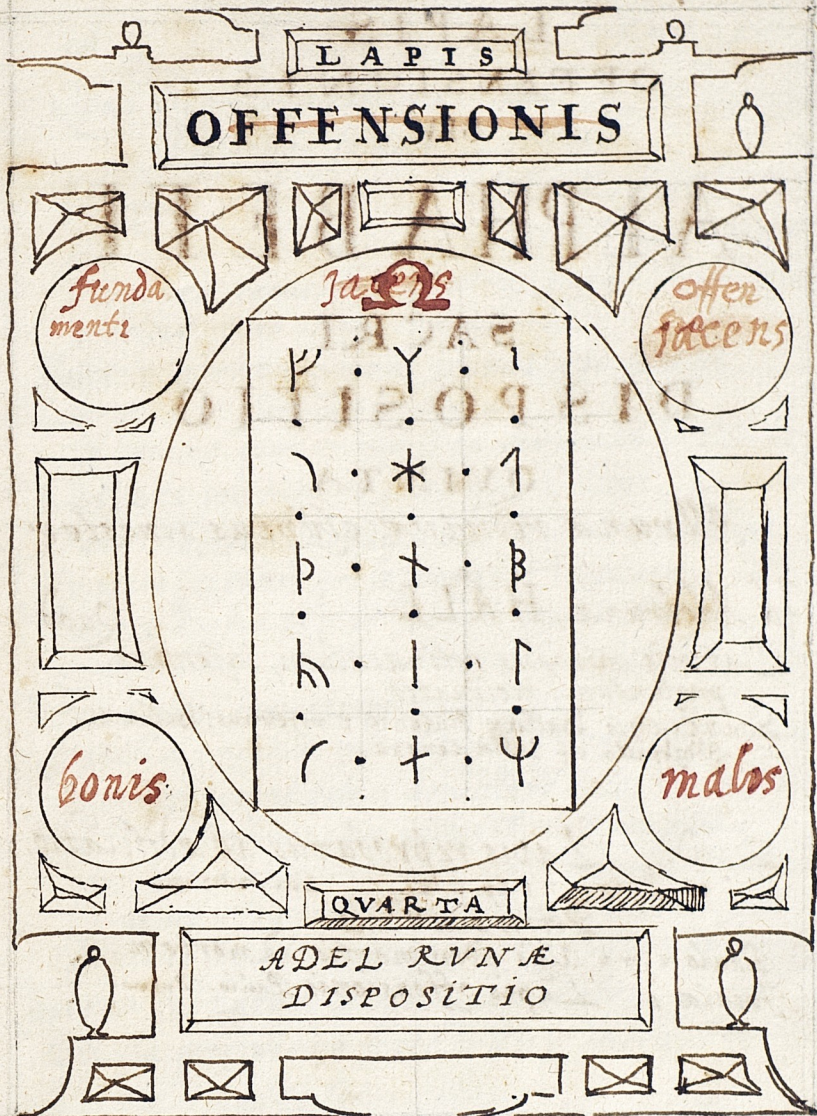 LAPIS
OFFENSIONIS
funda
menti
jacens
Ω
offen
jacens
ᚠ · Y · ᛌ
· · ·
· ᚼ · ᛐ
· · ·
ᚦ · ᚾ · ᛒ
· · ·
ᚮ · ᛁ · ᛚ
· · ·
· ᛅ · ᛘ
bonis
malis
QVARTA
ADEL RVNÆ
DISPOSITIO